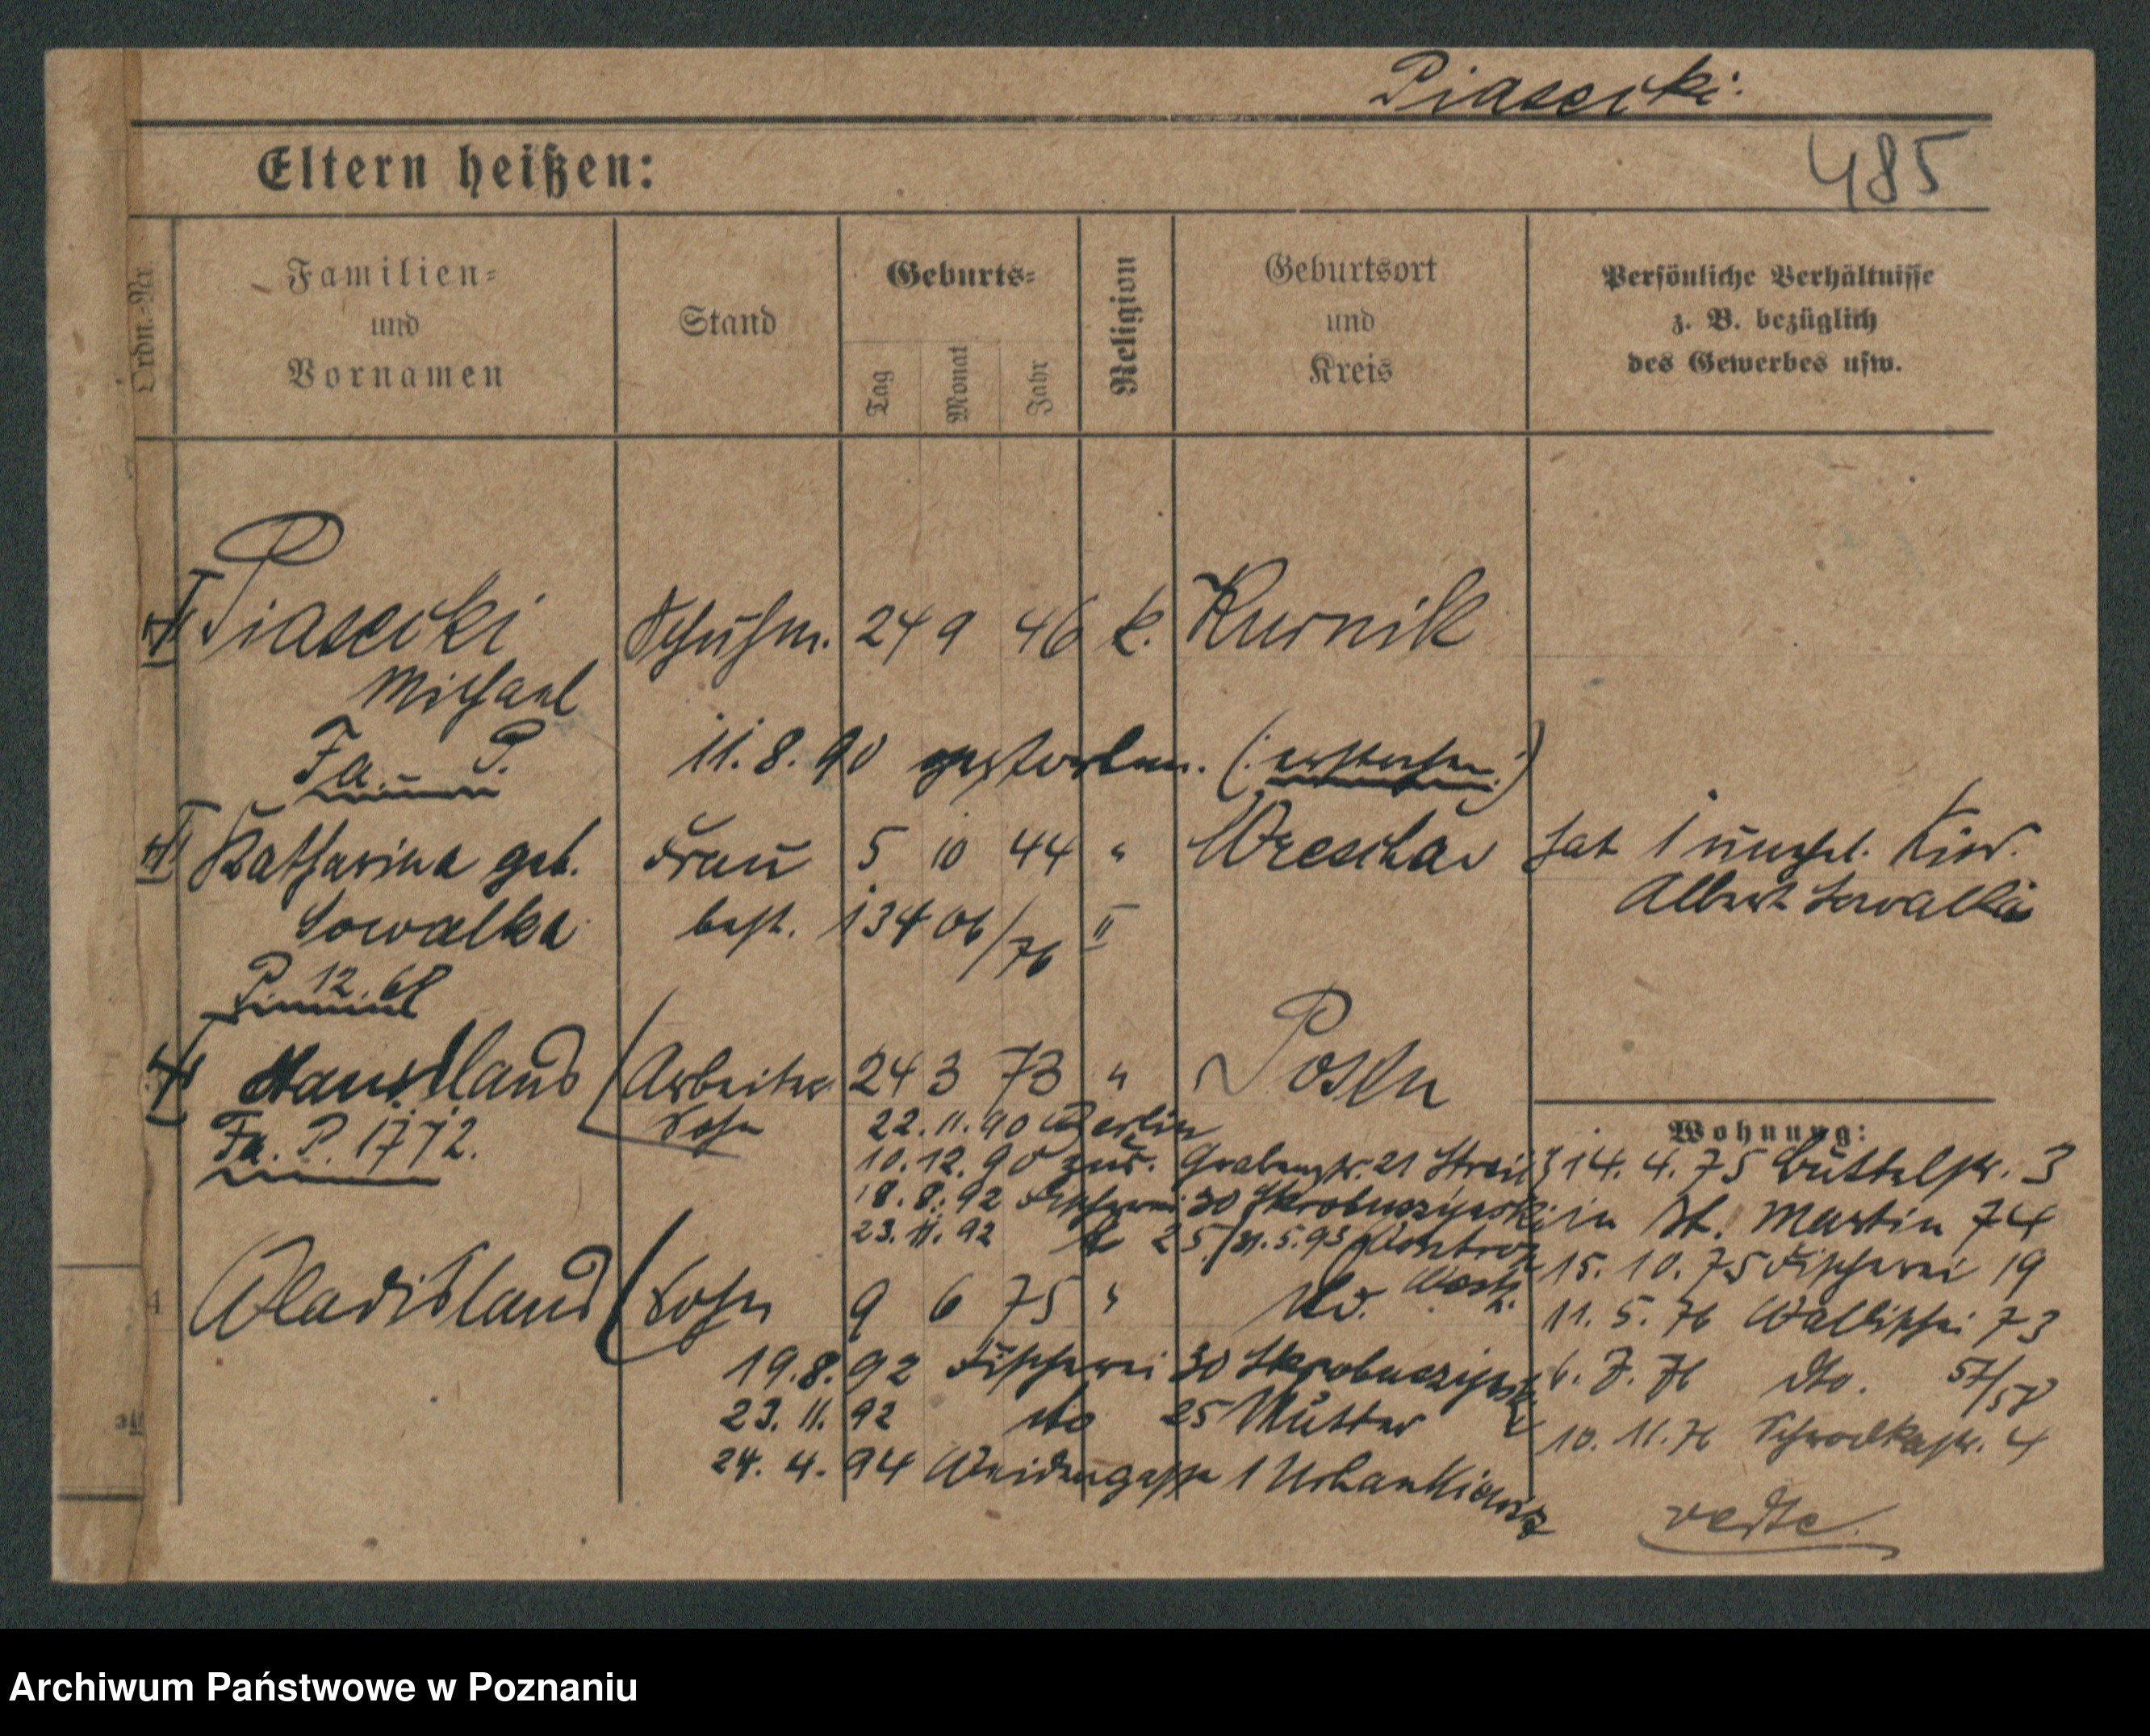 Piasecki.
Eltern heißen:
485
Ordn.-Nr.
Familien-
und
Vornamen
Stand
Geburts-
Tag
Monat
Jahr
Religion
Geburtsort
und
Kreis
Persönliche Verhältnisse
z. B. bezüglich
des Gewerbes usw.
Piasecki Schuhm. 24 9 46 k. Kurnik
Michael
Fa. P.
11.8.90 gestorben.
Katharina geb. Frau 5 10 44 " Wreschen hat 1 unehel. Kind.
Sowalka Albert Sowalka
best. 13406/76 II
P. 12.
Stanislaus Arbeiter 24 3 73 " Posen
Sohn
Fa. P. 1772.
22.11.90 Berlin
10.12.90 zur. Grabenstr. 21
18.8.92 Fischerei 30 Skrobuszynski
23.11.92 25
Wladislaus Sohn 9 6 75 "
19.8.92 Fischerei 30 Skrobuszynski
23.11.92 dto 25 Mutter
24.4.94 Weidengasse 1 Urbankiewicz
Wohnung:
14.4.75 Büttelstr. 3
St. Martin 74
15.10.75 Fischerei 19
11.5.76 Wallischei 73
6.7.76 dto. 57/58
10.11.76 Schrodkastr. 4
verte.
Archiwum Państwowe w Poznaniu